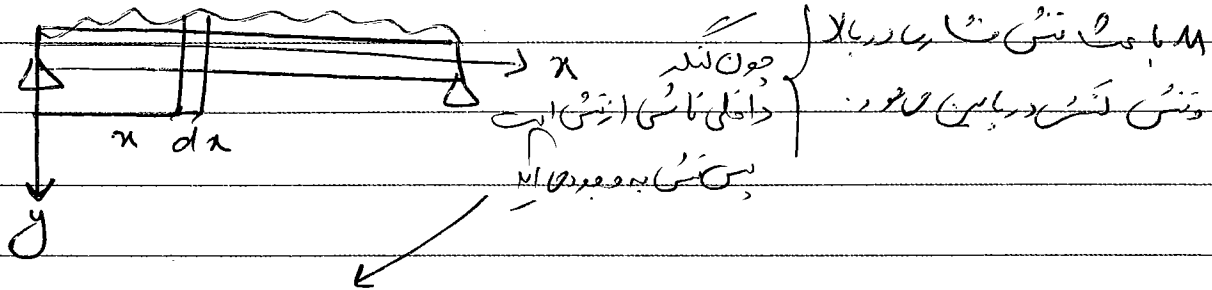 M باعث تنش فشاری در بالا
و تنش کششی در پایین می‌شود.
چون لنگر
داخلی ناشی از تنش است
پس تنش به وجود می‌آید
x
x dx
y